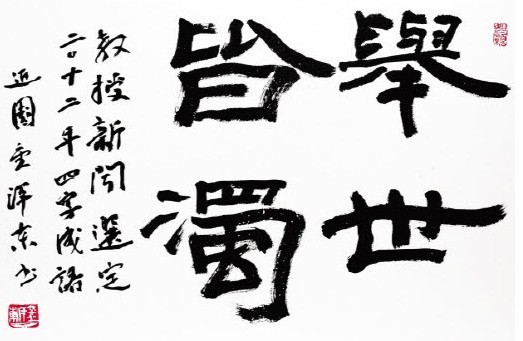 舉世
皆濁
教授新聞選定
二〇十二年四字成語
近園金洋東书